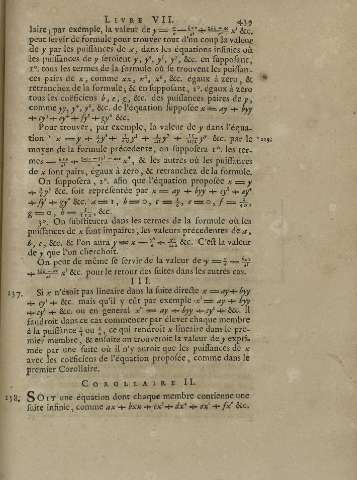 LIVRE VII. 429
laire; par exemple, la valeur de y =
peut servir de formule pour trouver tout d'un coup la valeur
de y par les puissances de x, dans les équations infinies où
les puissances de y seroient y, y³, y⁵, y⁷, &c. en supposant,
1°. tous les termes de la formule où se trouvent les puissan-
ces paires de x, comme xx, x⁴, x⁶, &c. égaux à zero, &
retranchez de la formule; & en supposant, 2°. égaux à zero
tous les coéficiens b, e, g, &c. des puissances paires de y,
comme yy, y⁴, y⁶, &c. de l'équation supposée x = ay + byy
+ cy³ + ey⁴ + fy⁵ + gy⁶ &c.
Pour trouver, par exemple, la valeur de y dans l'équa-
tion x = y + &c. par le
moyen de la formule precedente, on supposera 1°. les ter-
mes & les autres où les puissances
de x sont pairs, égaux à zero, & retranchez de la formule.
On supposera, 2°. afin que l'équation proposée x = y
&c. soit representée par x = ay + byy + cy³ + ey⁴
+ fy⁵ + gy⁶ &c. a = 1, b = 0, e = 0,
g = 0, &c.
3°. On substituera dans les termes de la formule où les
puissances de x sont impaires, les valeurs précedentes de a,
b, c, &c. & l'on aura y = x &c. C'est la valeur
de y que l'on cherchoit.
On peut de même se servir de la valeur de y =
&c. pour le retour des suites dans les autres cas.
III.
237. Si x n'étoit pas lineaire dans la suite directe x = ay + byy
+ cy³ &c. mais qu'il y eût par exemple = ay + byy
+ cy³ &c. ou en general = ay + byy + cy³ &c. il
faudroit dans ce cas commencer par élever chaque membre
à la puissance ou ce qui rendroit x lineaire dans le pre-
mier membre, & ensuite on trouveroit la valeur de y expri-
mée par une suite où il n'y auroit que les puissances de x
avec les coéficiens de l'équation proposée, comme dans le
premier Corollaire.
COROLLAIRE II.
238. SOIT une équation dont chaque membre contienne une
suite infinie, comme ax + bxx + cx³ + dx⁴ + ex⁵ + fx⁶ &c.